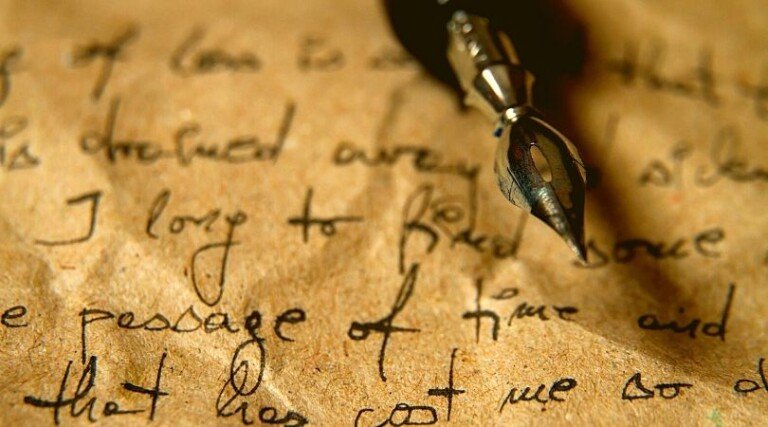 of loss is
is drained away
I long to find some
e passage of time and
that has cost me so d